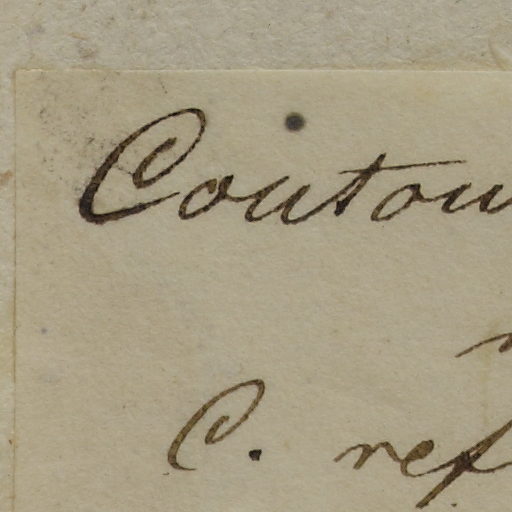 Coutou
C. ref